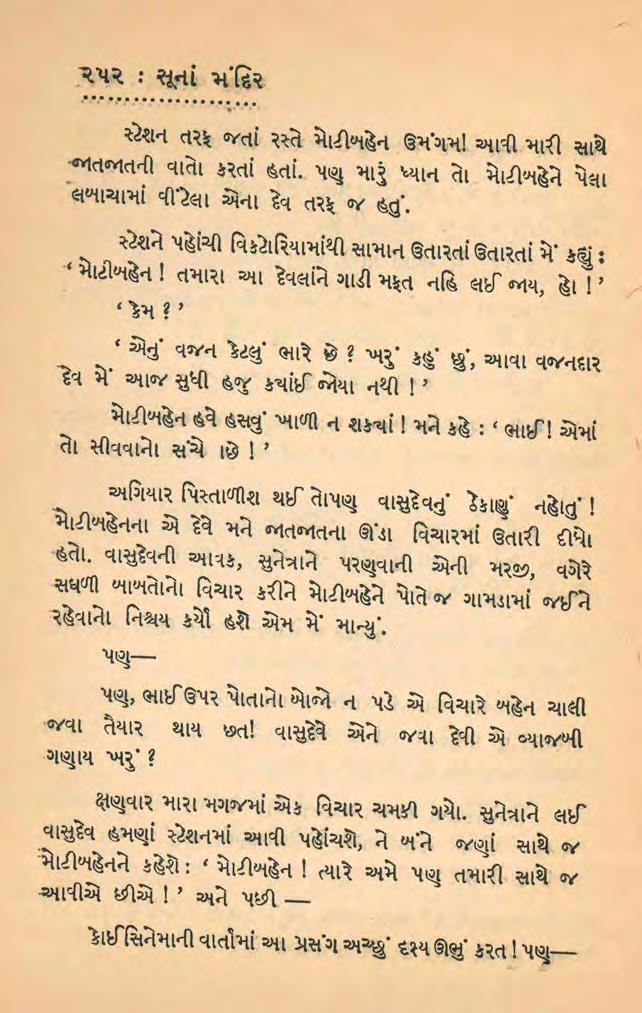 ૨૫૨ : સૂનાં મંદિર
સ્ટેશન તરફ જતાં રસ્તે મોટીબહેન ઉમંગમાં આવી મારી સાથે
જાતજાતની વાતો કરતાં હતાં. પણ મારું ધ્યાન તો મોટીબહેને પેલા
લબાચામાં વીંટેલા એના દેવ તરફ જ હતું.
સ્ટેશને પહોંચી વિક્ટોરિયામાંથી સામાન ઉતારતાં ઉતારતાં મેં કહ્યું :
‘ મોટીબહેન ! તમારા આ દેવલાંને ગાડી મફત નહિ લઈ જાય, હો ! ’
‘ કેમ ? ’
‘ એનું વજન કેટલું ભારે છે ? ખરું કહું છું, આવા વજનદાર
દેવ મેં આજ સુધી હજુ કયાંઈ જોયા નથી ! ’
મોટીબહેન હવે હસવું ખાળી ન શકયાં ! મને કહે : ‘ ભાઈ ! એમાં
તો સીવવાનો સંચો છે ! ’
અગિયાર પિસ્તાળીશ થઈ તોપણ વાસુદેવનું ઠેકાણું નહોતું !
મોટીબહેનના એ દેવે મને જાતજાતના ઊંડા વિચારમાં ઉતારી દીધો
હતો. વાસુદેવની આવક, સુનેત્રાને પરણવાની એની મરજી, વગેરે
સઘળી બાબતોનો વિચાર કરીને મોટીબહેને પોતે જ ગામડામાં જઈને
રહેવાનો નિશ્ચય કર્યો હશે એમ મેં માન્યું.
પણ—
પણ, ભાઈ ઉપર પોતાનો બોજો ન પડે એ વિચારે બહેન ચાલી
જવા તૈયાર થાય છતાં વાસુદેવે એને જવા દેવી એ વ્યાજબી
ગણાય ખરું ?
ક્ષણવાર મારા મગજમાં એક વિચાર ચમકી ગયો. સુનેત્રાને લઈ
વાસુદેવ હમણાં સ્ટેશનમાં આવી પહોંચશે, ને બંને જણાં સાથે જ
મોટીબહેનને કહેશે : ‘ મોટીબહેન ! ત્યારે અમે પણ તમારી સાથે જ
આવીએ છીએ ! ’ અને પછી —
કોઈ સિનેમાની વાર્તામાં આ પ્રસંગ અચ્છું દૃશ્ય ઊભું કરત ! પણ—